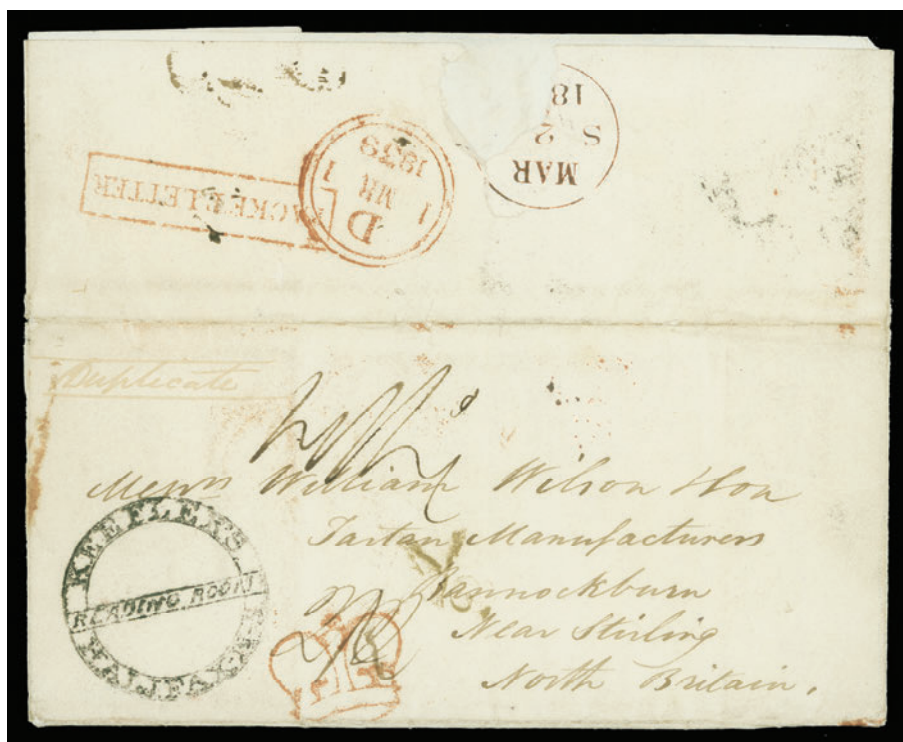 MAR
S 2
18
D
1 MR 1
1839
PACKET LETTER
Duplicate
Messrs William Wilson & Son
Tartan Manufacturers
Bannockburn
Near Stirling
North Britain.
KEEFLER'S
READING ROOM
HALIFAX.N.S